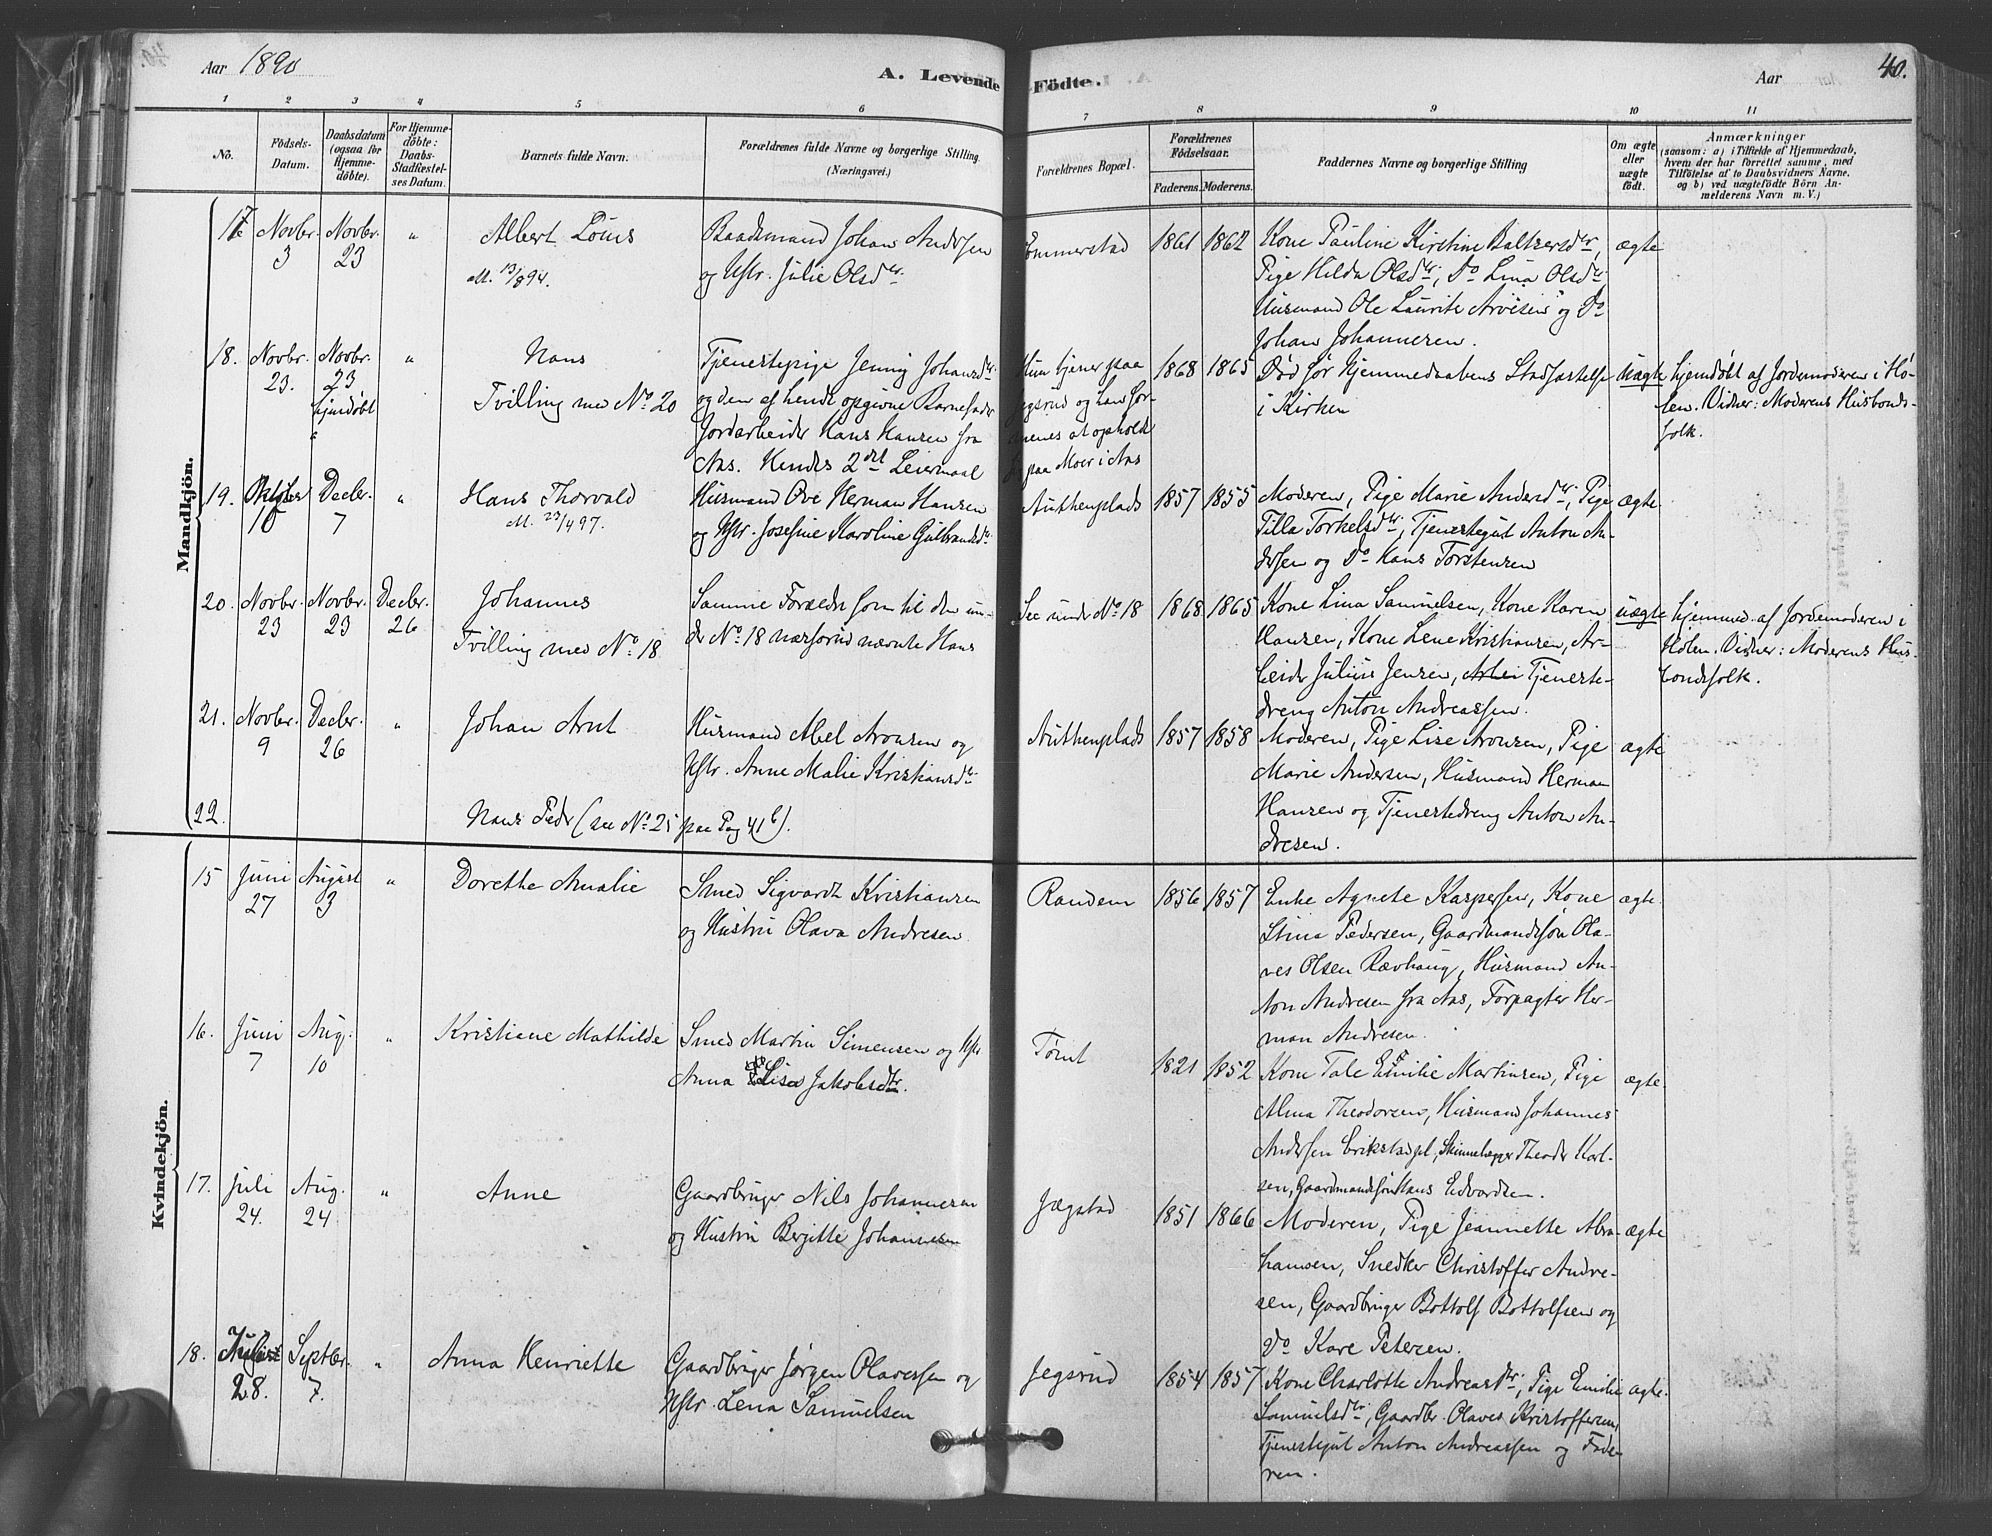 Aar 1890
A. Levende Födte.
Aar
40.
1 2 3 4 5 6 7 8 9 10 11
No.
Födsels-
Datum.
Daabsdatum
(ogsaa for
Hjemme-
döbte).
For Hjemme-
döbte:
Daabs-
Stadfæstel-
ses Datum.
Barnets fulde Navn.
Forældrenes fulde Navne og borgerlige Stilling
(Næringsvei.)
Forældrenes Bopæl.
Forældrenes
Födselsaar.
Faderens. Moderens.
Faddernes Navne og borgerlige Stilling
Om ægte
eller
uægte
födt.
Anmærkninger
(saasom: a) i Tilfælde af Hjemmedaab,
hvem der har forrettet samme, med
Tilföielse af to Daabsvidners Navne,
og b) ved uægtefödte Börn An-
melderens Navn m. V.)
Mandkjön.
17 Novbr. 3 Novbr. 23 "
Albert Louis
M. 13/8 94.
Baadsmand Johan Andersen
og Hstr. Julie Olsdtr.
Emmerstad
1861 1862
Kone Pauline Kirstine Baltzersdtr,
Pige Hilda Olsdtr, Do Lina Olsdtr
Husmand Ole Laurits Arvesen og Do
Johan Johannesen.
ægte
18. Novbr. 23. Novbr. 23 hjemdöbt "
Hans
Tvilling med No 20
Tjenestepige Jenny Johansdtr.
og den af hende opgivne Barnefader
Jordarbeider Hans Hansen fra
Aas. Hendes 2det Leiermaal
Hun tjener paa
Jegsrud og han for-
menes at opholde
sig paa Moer i Aas
1868 1865
Död för Hjemmedaabens Stadfæstelse
i Kirken
Uægte
hjemdöbt af Jordemoderen i Hö-
len. Vidner: Moderens Husbonds-
folk.
19. Oktober 10 Decbr. 7 "
Hans Thorvald
M. 23/4 97.
Husmand Ove Herman Hansen
og Hstr. Josefine Karoline Gulbrandsdtr
Authenplads
1857 1855
Moderen, Pige Marie Andersdtr, Pige
Tilla Torkelsdtr, Tjenestegut Anton An-
dersen og Do Hans Torstensen
ægte
20. Novbr. 23 Novbr. 23 Decbr. 26
Johannes
Tvilling med No 18
Samme Forældre som til den un-
der No 18 næsforud nævnte Hans
See under No 18
1868 1865
Kone Lina Samuelsen, Kone Karen
Hansen, Kone Lene Kristiansen, Ar-
beider Julius Jensen, Tjeneste-
dreng Anton Andreassen.
uægte
hjemmed. af Jordemoderen i
Hölen. Vidner: Moderens Hus-
bondsfolk.
21. Novbr. 9 Decbr. 26 "
Johan Arnt
Husmand Abel Aronsen og
Hstr. Anne Malie Kristiansdtr
Authenplads
1857 1858
Moderen, Pige Lise Aronsen, Pige
Marie Andersen, Husmand Herman
Hansen og Tjenestedreng Anton An-
dresen.
ægte
22. Hans Pedr (see No 25 paa Pag 41 b).
Kvindekjön.
15 Juni 27 August 3 "
Dorethe Amalie
Smed Sigvardt Kristiansen
og Hustru Olava Andresen
Randem
1856 1857
Enke Agnete Kaspersen, Kone
Stina Pedersen, Gaardmandssön Ola-
ves Olsen Rævhaug, Husmand An-
ton Andresen fra Aas, Forpagter Her-
man Andresen.
ægte
16. Juni 7 Aug. 10 "
Kristiane Mathilde
Smed Martin Simensen og Hstr
Anna Lisa Jakobsdtr.
Tömt
1821 1852
Kone Tale Emilie Martinsen, Pige
Alma Theodorsen, Husmand Johannes
Andersen Erikstadpl, Skindlægger Theodor Karl-
sen, Gaardmandssön Hans Edvardsen.
ægte
17. Juli 24. Aug. 24 "
Anne
Gaardbruger Nils Johannesen
og Hustru Bergitte Johannesen
Jægstad
1851 1866
Moderen, Pige Jeannette Abra-
hamsen, Snedker Christoffer Andre-
sen, Gaardbruger Bottolf Bottolfsen og
Do Kare Petersen.
ægte
18. Juli 28. Septbr. 7. "
Anna Henriette
Gaardbruger Jörgen Olavessen og
Hstr. Lena Samuelsen
Jegsrud
1854 1857
Kone Charlotte Andreasdtr, Pige Emilie
Samuelsdtr, Gaardbr. Olaves Kristoffersen,
Tjenestegut Anton Andreassen og Fade-
ren.
ægte.